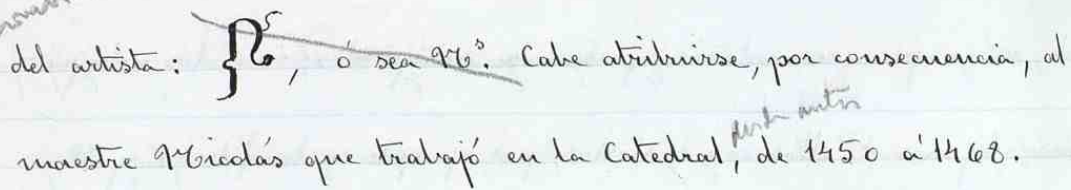 del artista: , ó sea Nº. Cabe atribuirse, por consecuencia, al
maestre Nicolás que trabajó en la Catedral, de 1450 á 1468.